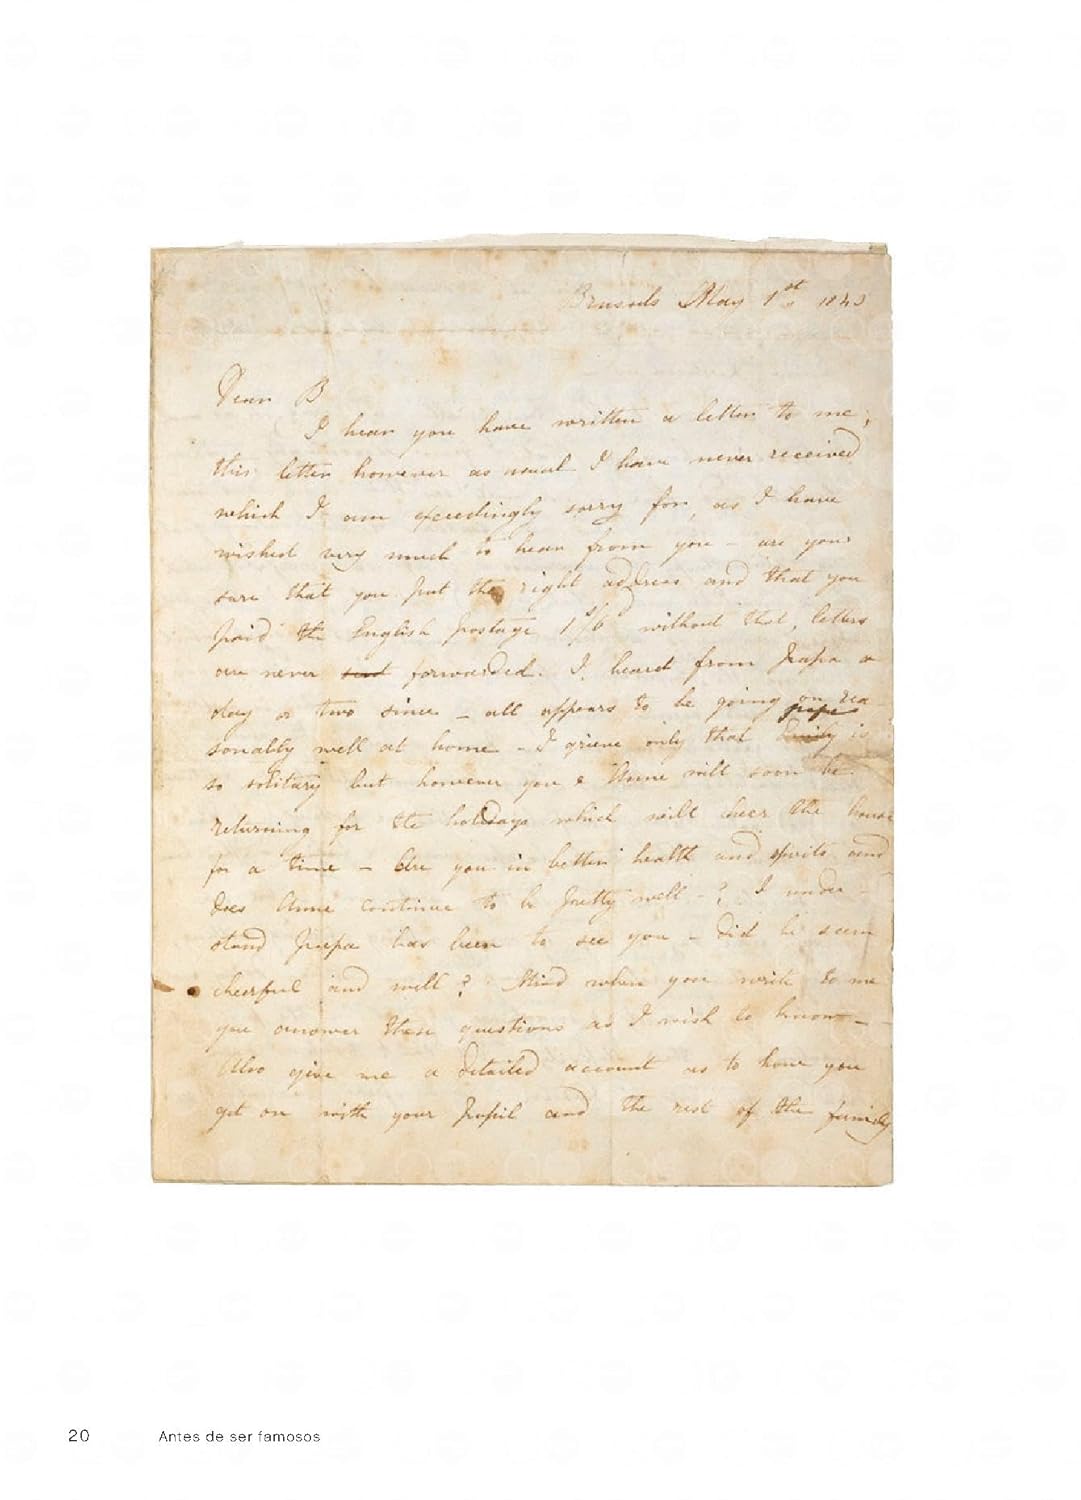 Brussels May 1st 1843
Dear B
I hear you have written a letter to me;
this letter however as usual I have never received
which I am exceedingly sorry for, as I have
wished very much to hear from you – are you
sure that you put the right address and that you
paid the English postage 1s/6d without that, letters
are never sent forwarded. I heard from Papa a
day or two since – all appears to be going on rea
papa
sonably well at home – I grieve only that Emily is
so solitary but however you & Anne will soon be
returning for the holidays which will cheer the house
for a time – Are you in better health and spirits and
does Anne continue to be pretty well –? I under-
stand Papa has been to see you – did he seem
cheerful and well? Mind when you write to me
you answer these questions as I wish to know –
Also give me a detailed account as to how you
get on with your pupil and the rest of the family
20 Antes de ser famosos